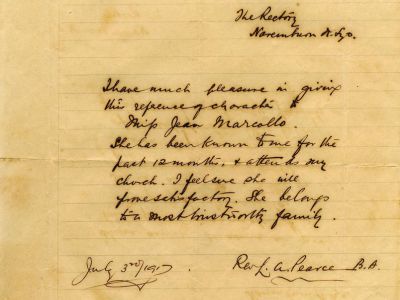 The Rectory
Naremburn N. Syd.
I have much pleasure in giving
this reference of character to
Miss Jean Marcollo.
She has been known to me for the
past 12 months, & attends my
church. I feel sure she will
prove satisfactory. She belongs
to a most trustworthy family.
July 3rd/1917. Rev. L. A. Pearce B.A.